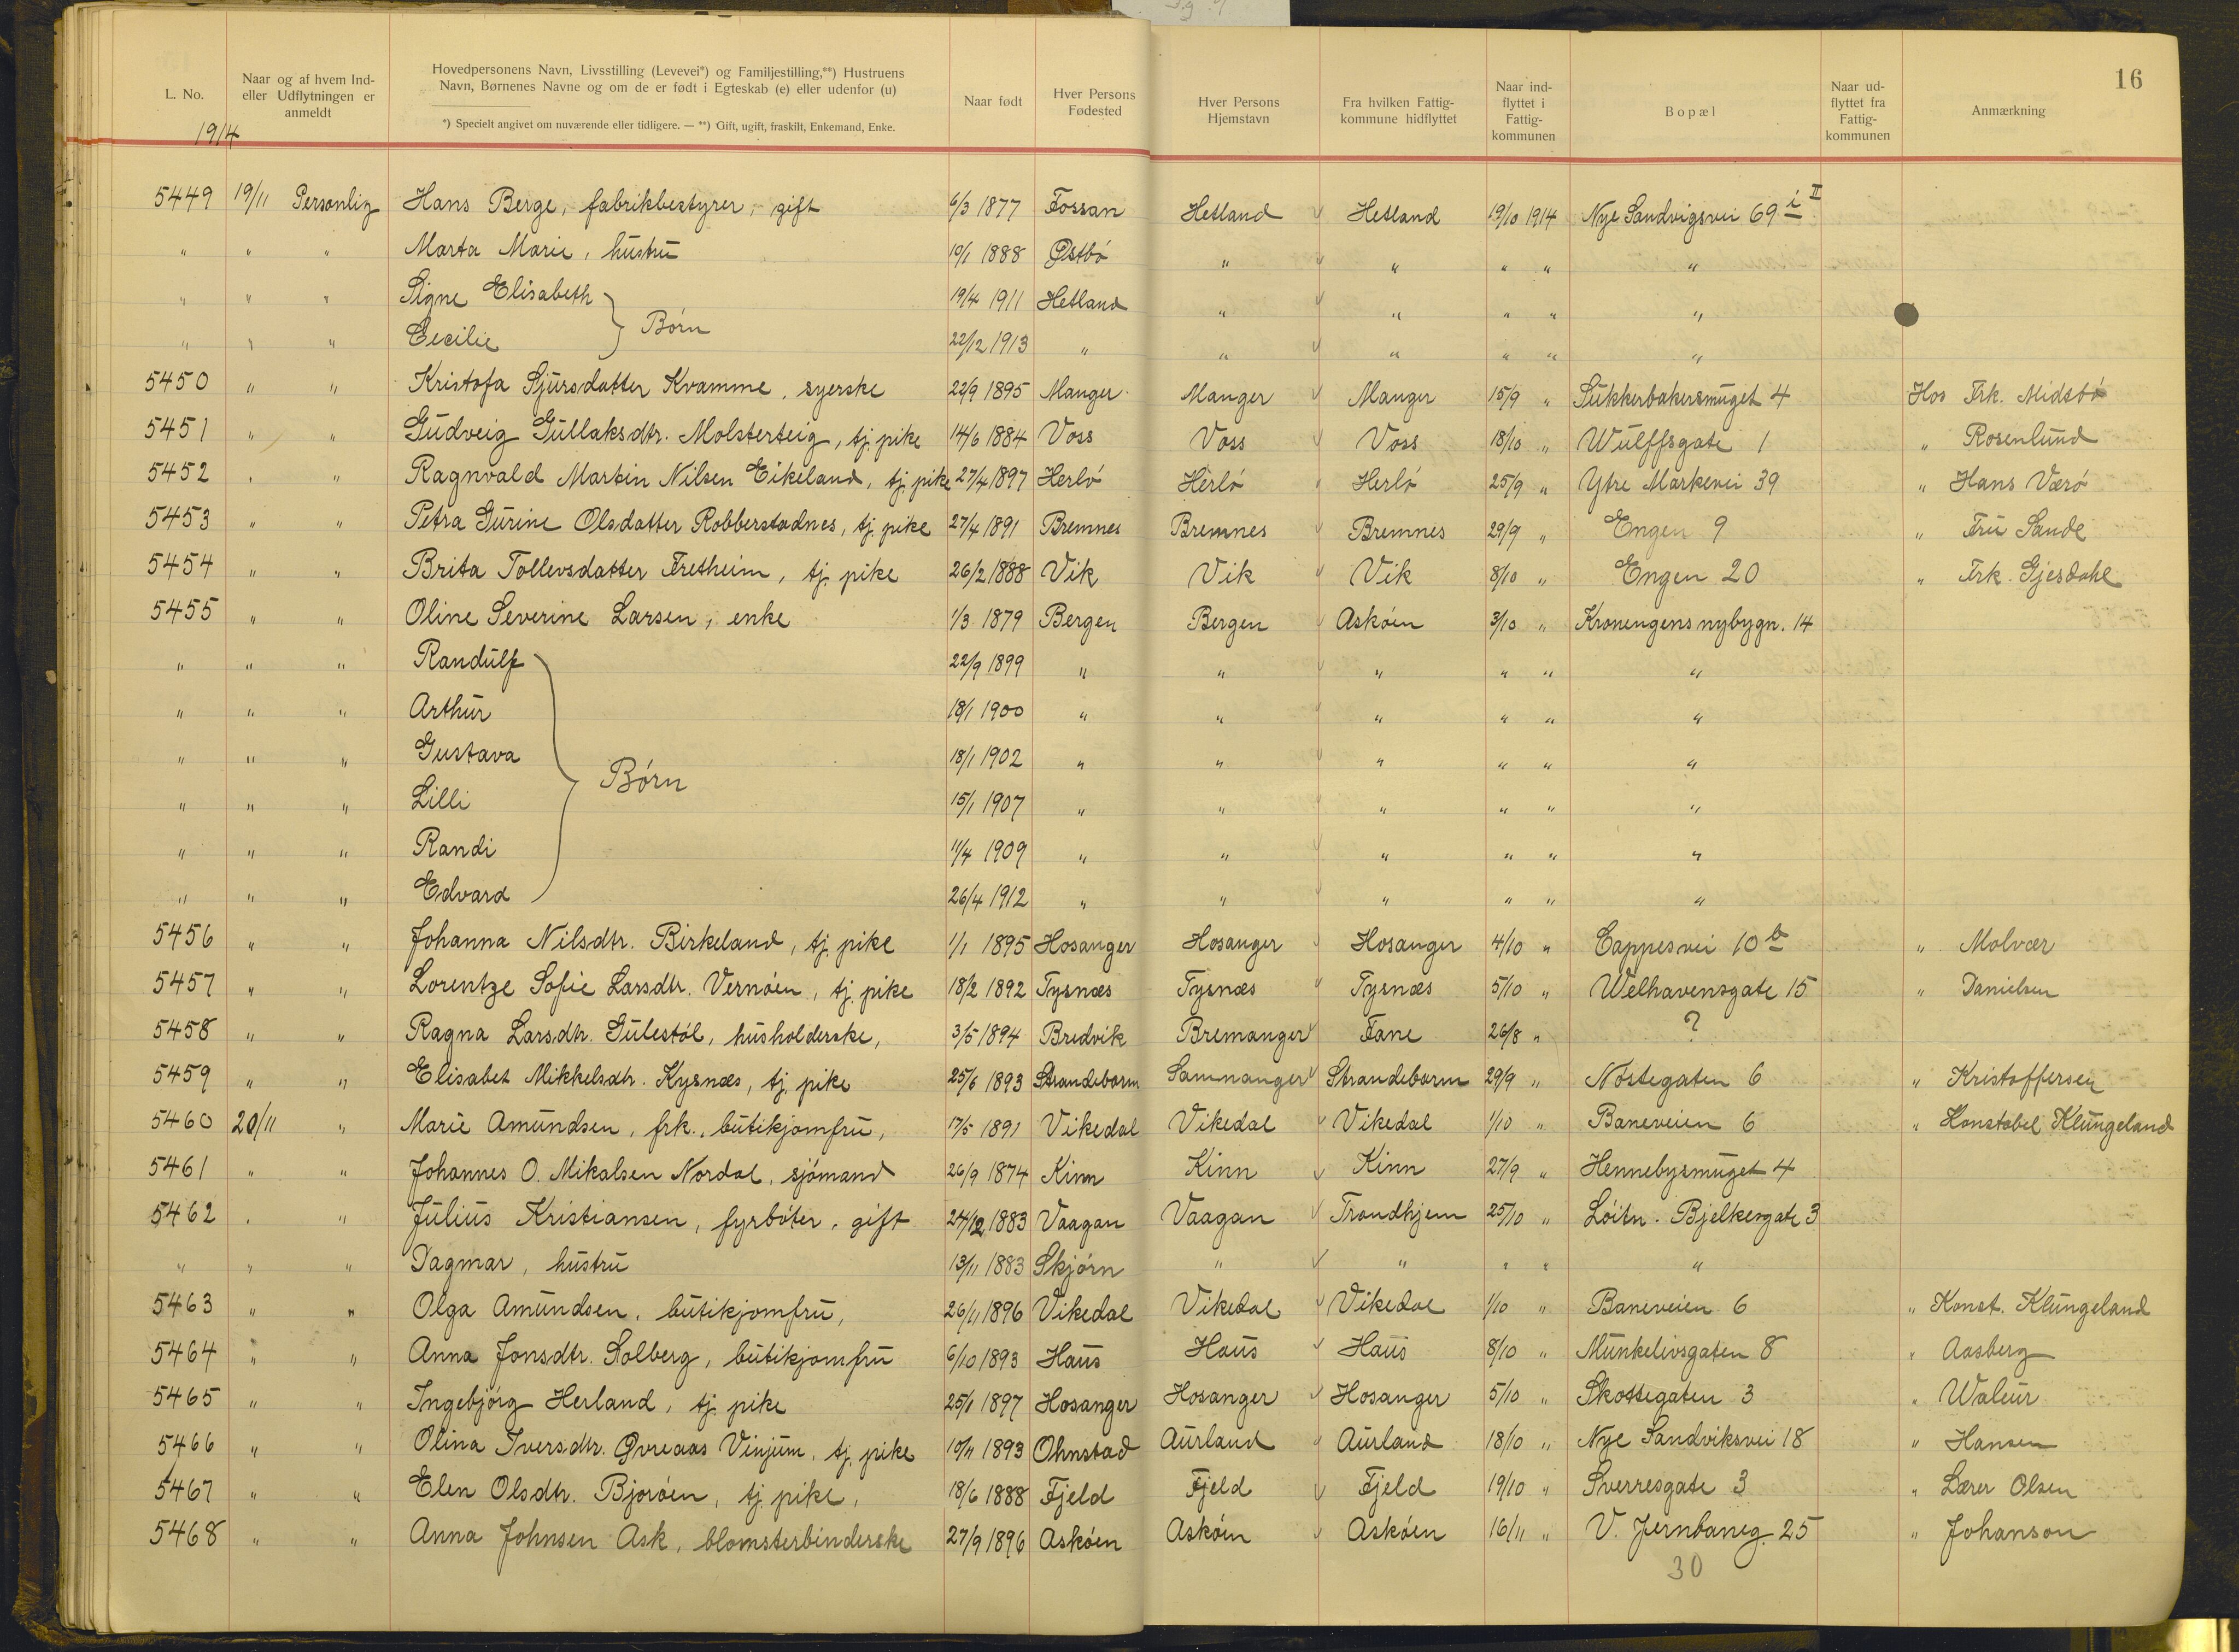 16
L. No.
Naar og af hvem Ind- eller Udflytningen er anmeldt
Hovedpersonens Navn, Livsstilling (Levevei*) og Familjestilling,**) Hustruens Navn, Børnenes Navne og om de er født i Egteskab (e) eller udenfor (u)
*) Specielt angivet om nuværende eller tidligere. — **) Gift, ugift, fraskilt, Enkemand, Enke.
Naar født
Hver Persons Fødested
Hver Persons Hjemstavn
Fra hvilken Fattig- kommune hidflyttet
Naar ind- flyttet i Fattig- kommunen
Bopæl
Naar ud- flyttet fra Fattig- kommunen
Anmærkning
1914
5449 19/11 Personlig Hans Berge, fabrikbestyrer, gift 6/3 1877 Fossan Hetland Hetland 19/10 1914 Nye Sandvigsvei 69 i II
" " " Marta Marie, hustru 10/1 1888 Østbö " " " " "
" " " Signe Elisabeth } Børn 19/4 1911 Hetland " " " " "
" " " Cecilie 22/12 1913 " " " " " "
5450 " " Kristofa Sjursdatter Kvamme, syerske 22/9 1895 Manger Manger Manger 15/9 " Sukkerbakersmuget 4 Hos Frk. Midtbö
5451 " " Gudveig Gullaksdtr. Molsterteig, tj. pike 14/6 1884 Voss Voss Voss 18/10 " Wulffsgate 1 " Rosenlund
5452 " " Ragnvald Martin Nilsen Eikeland, tj. pike 27/4 1897 Herlö Herlö Herlö 25/9 " Ytre Markevei 39 " Hans Værö
5453 " " Petra Gurine Olsdatter Robberstadnes, tj. pike 27/4 1891 Bremnes Bremnes Bremnes 29/9 " Engen 9 " Fru Sande
5454 " " Brita Tollevsdatter Fretheim, tj. pike 26/2 1888 Vik Vik Vik 8/10 " Engen 20 " Frk. Gjesdahl
5455 " " Oline Severine Larsen, enke 1/3 1879 Bergen Bergen Asköen 3/10 " Kronengens nybygn. 14
" " " Randulf 22/9 1899 " " " " " "
" " " Arthur 18/1 1900 " " " " " "
" " " Gustava 18/1 1902 " " " " " "
Börn
" " " Lilli 15/1 1907 " " " " " "
" " " Randi 11/4 1909 " " " " " "
" " " Edvard 26/4 1912 " " " " " "
5456 " " Johanna Nilsdtr. Birkeland, tj. pike 1/1 1895 Hosanger Hosanger Hosanger 4/10 " Cappesvei 10 b " Molvær
5457 " " Lorentze Sofie Larsdtr. Vernöen, tj. pike 18/2 1892 Tysnæs Tysnæs Tysnæs 5/10 " Welhavensgate 15 " Danielsen
5458 " " Ragna Larsdtr. Gulestöl, husholderske, 3/5 1894 Bredvik Bremanger Fane 26/8 " ?
5459 " " Elisabet Mikkelsdtr. Kysnæs, tj. pike 25/6 1893 Strandebarm Samnanger Strandebarm 29/9 " Nöstegaten 6 " Kristoffersen
5460 20/11 " Marie Amundsen, frk., butikjomfru, 17/5 1891 Vikedal Vikedal Vikedal 1/10 " Baneveien 6 " Konstabel Klungeland
5461 " " Johannes O. Mikalsen Nordal, sjömand 26/9 1874 Kinn Kinn Kinn 27/9 " Hennebysmuget 4
5462 " " Julius Kristiansen, fyrböter, gift 24/12 1883 Vaagan Vaagan Trondhjem 25/10 " Löitn. Bjelkesgate 3
" " " Dagmar, hustru 13/11 1883 Skjörn " " " " "
5463 " " Olga Amundsen, butikjomfru, 26/11 1896 Vikedal Vikedal Vikedal 1/10 " Baneveien 6 " Konst. Klungeland
5464 " " Anna Jonsdtr. Solberg, butikjomfru 6/10 1893 Haus Haus Haus 8/10 " Munkelivsgaten 8 " Aasberg
5465 " " Ingebjörg Herland, tj. pike 25/1 1897 Hosanger Hosanger Hosanger 5/10 " Skottegaten 3 " Waleur
5466 " " Olina Iversdtr. Øvreaas Vinjum, tj. pike 10/11 1893 Ohnstad Aurland Aurland 18/10 " Nye Sandviksvei 18 " Hansen
5467 " " Elen Olsdtr. Bjoröen, tj. pike, 18/6 1888 Fjeld Fjeld Fjeld 19/10 " Sverresgate 3 " Lærer Olsen
5468 " " Anna Johnsen Ask, blomsterbinderske 27/9 1896 Asköen Asköen Asköen 16/11 " V. Jernbaneg. 25 " Johanson
30